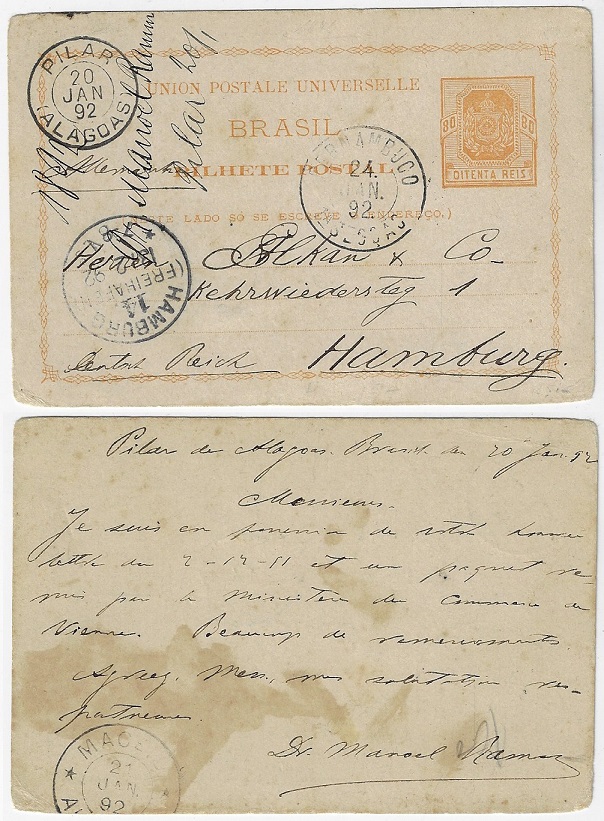 PILAR
20
JAN
92
(ALAGOAS)
Manoel Ramos
Pilar 20/1
UNION POSTALE UNIVERSELLE
BRASIL
BILHETE POSTAL
80 80
OITENTA REIS
PERNAMBUCO
24.
JAN.
92
(NESTE LADO SÓ SE ESCREVE O ENDEREÇO.)
HAMBURG
(FREIHAFEN)
Herren Elkan & Co-
Kehrwiedersteg 1
Deutsch Reich Hamburg.
Pilar de Alagoas. Brasil den 20 Jan. 92
Messieurs.
Je suis en possession de votre
lettre du 2-12-91 et un paquet re-
mis par le Ministère du Commerce de
Vienne. Beaucoup de remerciements.
Agréez, Mess., mes salutations res-
pectueuses.
Dr. Manoel Ramos
MACEIÓ
21
JAN.
92